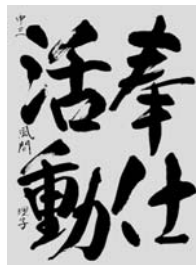 奉仕
活動
中三 風間 理子